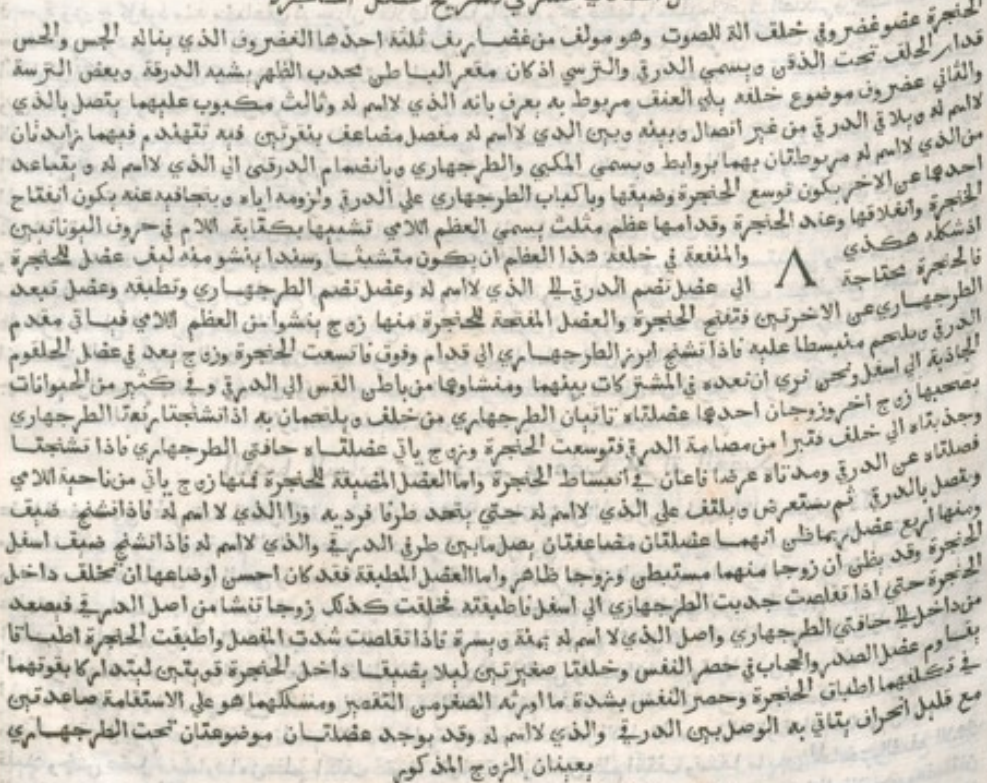 الحنجرة عضو غضروفي خلف الة للصوت وهو مولف من غضاريف ثلثة احدها الغضروف الذي يناله الجس والحس
قدام الحلف تحت الذقن ويسمي الدرقي والترسي اذ كان مقعر الباطن محدب الظهر يشبه الدرقة وبعض الترسة
والثاني غضروف موضوع خلفه يلي العنف مربوط به يعرف بانه الذي لااسم له وثالث مكبوب عليهما يتصل بالذي
لااسم له ويلاقي الدرقي من غير اتصال وبينه وبين الذي لااسم له مفصل مضاعف بنقرتين فيه تتهندم فيهما زايدتان
من الذي لااسم له مربوطتان بهما بروابط ويسمي المكبي والطرجهاري وبانضمام الدرقي الي الذي لااسم له وبتباعد
احدها عن الاخر يكون توسع الحنجرة وضيقها وباكباب الطرجهاري علي الدرقي ولزومه اياه وبتجافيه عنه يكون انفتاح
الحنجرة وانغلاقها وعند الحنجرة وقدامها عظم مثلث يسمي العظم اللامي تشبيها بكتابة اللام في حروف اليونانيين
اذ شكله هكذي Λ والمنفعة في خلقة هذا العظم ان يكون متشبثا وسندا ينشو منه ليف عضل الحنجرة
فالحنجرة محتاجة الي عضل تضم الدرقي الي الذي لااسم له وعضل تضم الطرجهاري وتطبقه وعضل تبعد
الطرجهاري عن الاخرتين فتفتح الحنجرة والعضل المفتحة للحنجرة منها زوج ينشوا من العظم اللامي فياتي مقدم
الدرقي ويلتحم منبسطا عليه فاذا تشنج ابرز الطرجهاري الي قدام وفوق فاتسعت الحنجرة وزوج يعد في عضل الحلقوم
الجاذبة الي اسفل ونحن نري ان نعده في المشتركات بينهما ومنشاوها من باطن القس الي الدرقي وفي كثير من الحيوانات
يصحبها زوج اخر وزوجان احدها عضلتاه تاتيان الطرجهاري من خلف ويلتحمان به اذا تشنجتا رفعتا الطرجهاري
وجذبتاه الي خلف فتبرا من مضامة الدرقي فتوسعت الحنجرة وزوج ياتي عضلتاه حافتي الطرجهاري فاذا تشنجتا
فصلتاه عن الدرقي ومدتاه عرضا فاعان في انبساط الحنجرة واما العضل المضيقة للحنجرة فمنها زوج ياتي من ناحية اللامي
ويتصل بالدرقي ثم يستعرض ويلتف علي الذي لااسم له حتي يتحد طرفا فرديه ورا الذي لا اسم له فاذا تشنج ضيق
ومنها اربع عضل ربما ظن انهما عضلتان مضاعفتان يصل ما بين طرفي الدرقي والذي لااسم له فاذا تشنج ضيق اسفل
الحنجرة وقد يظن ان زوجا منهما مستبطن وزوجا ظاهر واما العضل المطبقة فقد كان احسن اوضاعها ان تخلف داخل
الحنجرة حتي اذا تقلصت جذبت الطرجهاري الي اسفل فاطبقته فخلقت كذلك زوجا تنشا من اصل الدرقي فيصعد
من داخل الي حافتي الطرجهاري واصل الذي لا اسم له يمنة ويسرة فاذا تقلصت شدت المفصل واطبقت الحنجرة اطباقا
يقاوم عضل الصدر والحجاب في حصر النفس وخلقتا صغيرتين ليلا يضيقا داخل الحنجرة قويتين ليتداركا بقوتهما
في تكلفهما اطباق الحنجرة وحصر النفس بشدة ما اورثه الصغر من التقصير ومسلكهما هو علي الاستقامة صاعدتين
مع قليل انحراف يتاتي به الوصل بين الدرقي والذي لااسم له وقد يوجد عضلتان موضوعتان تحت الطرجهاري
يعينان الزوج المذكور